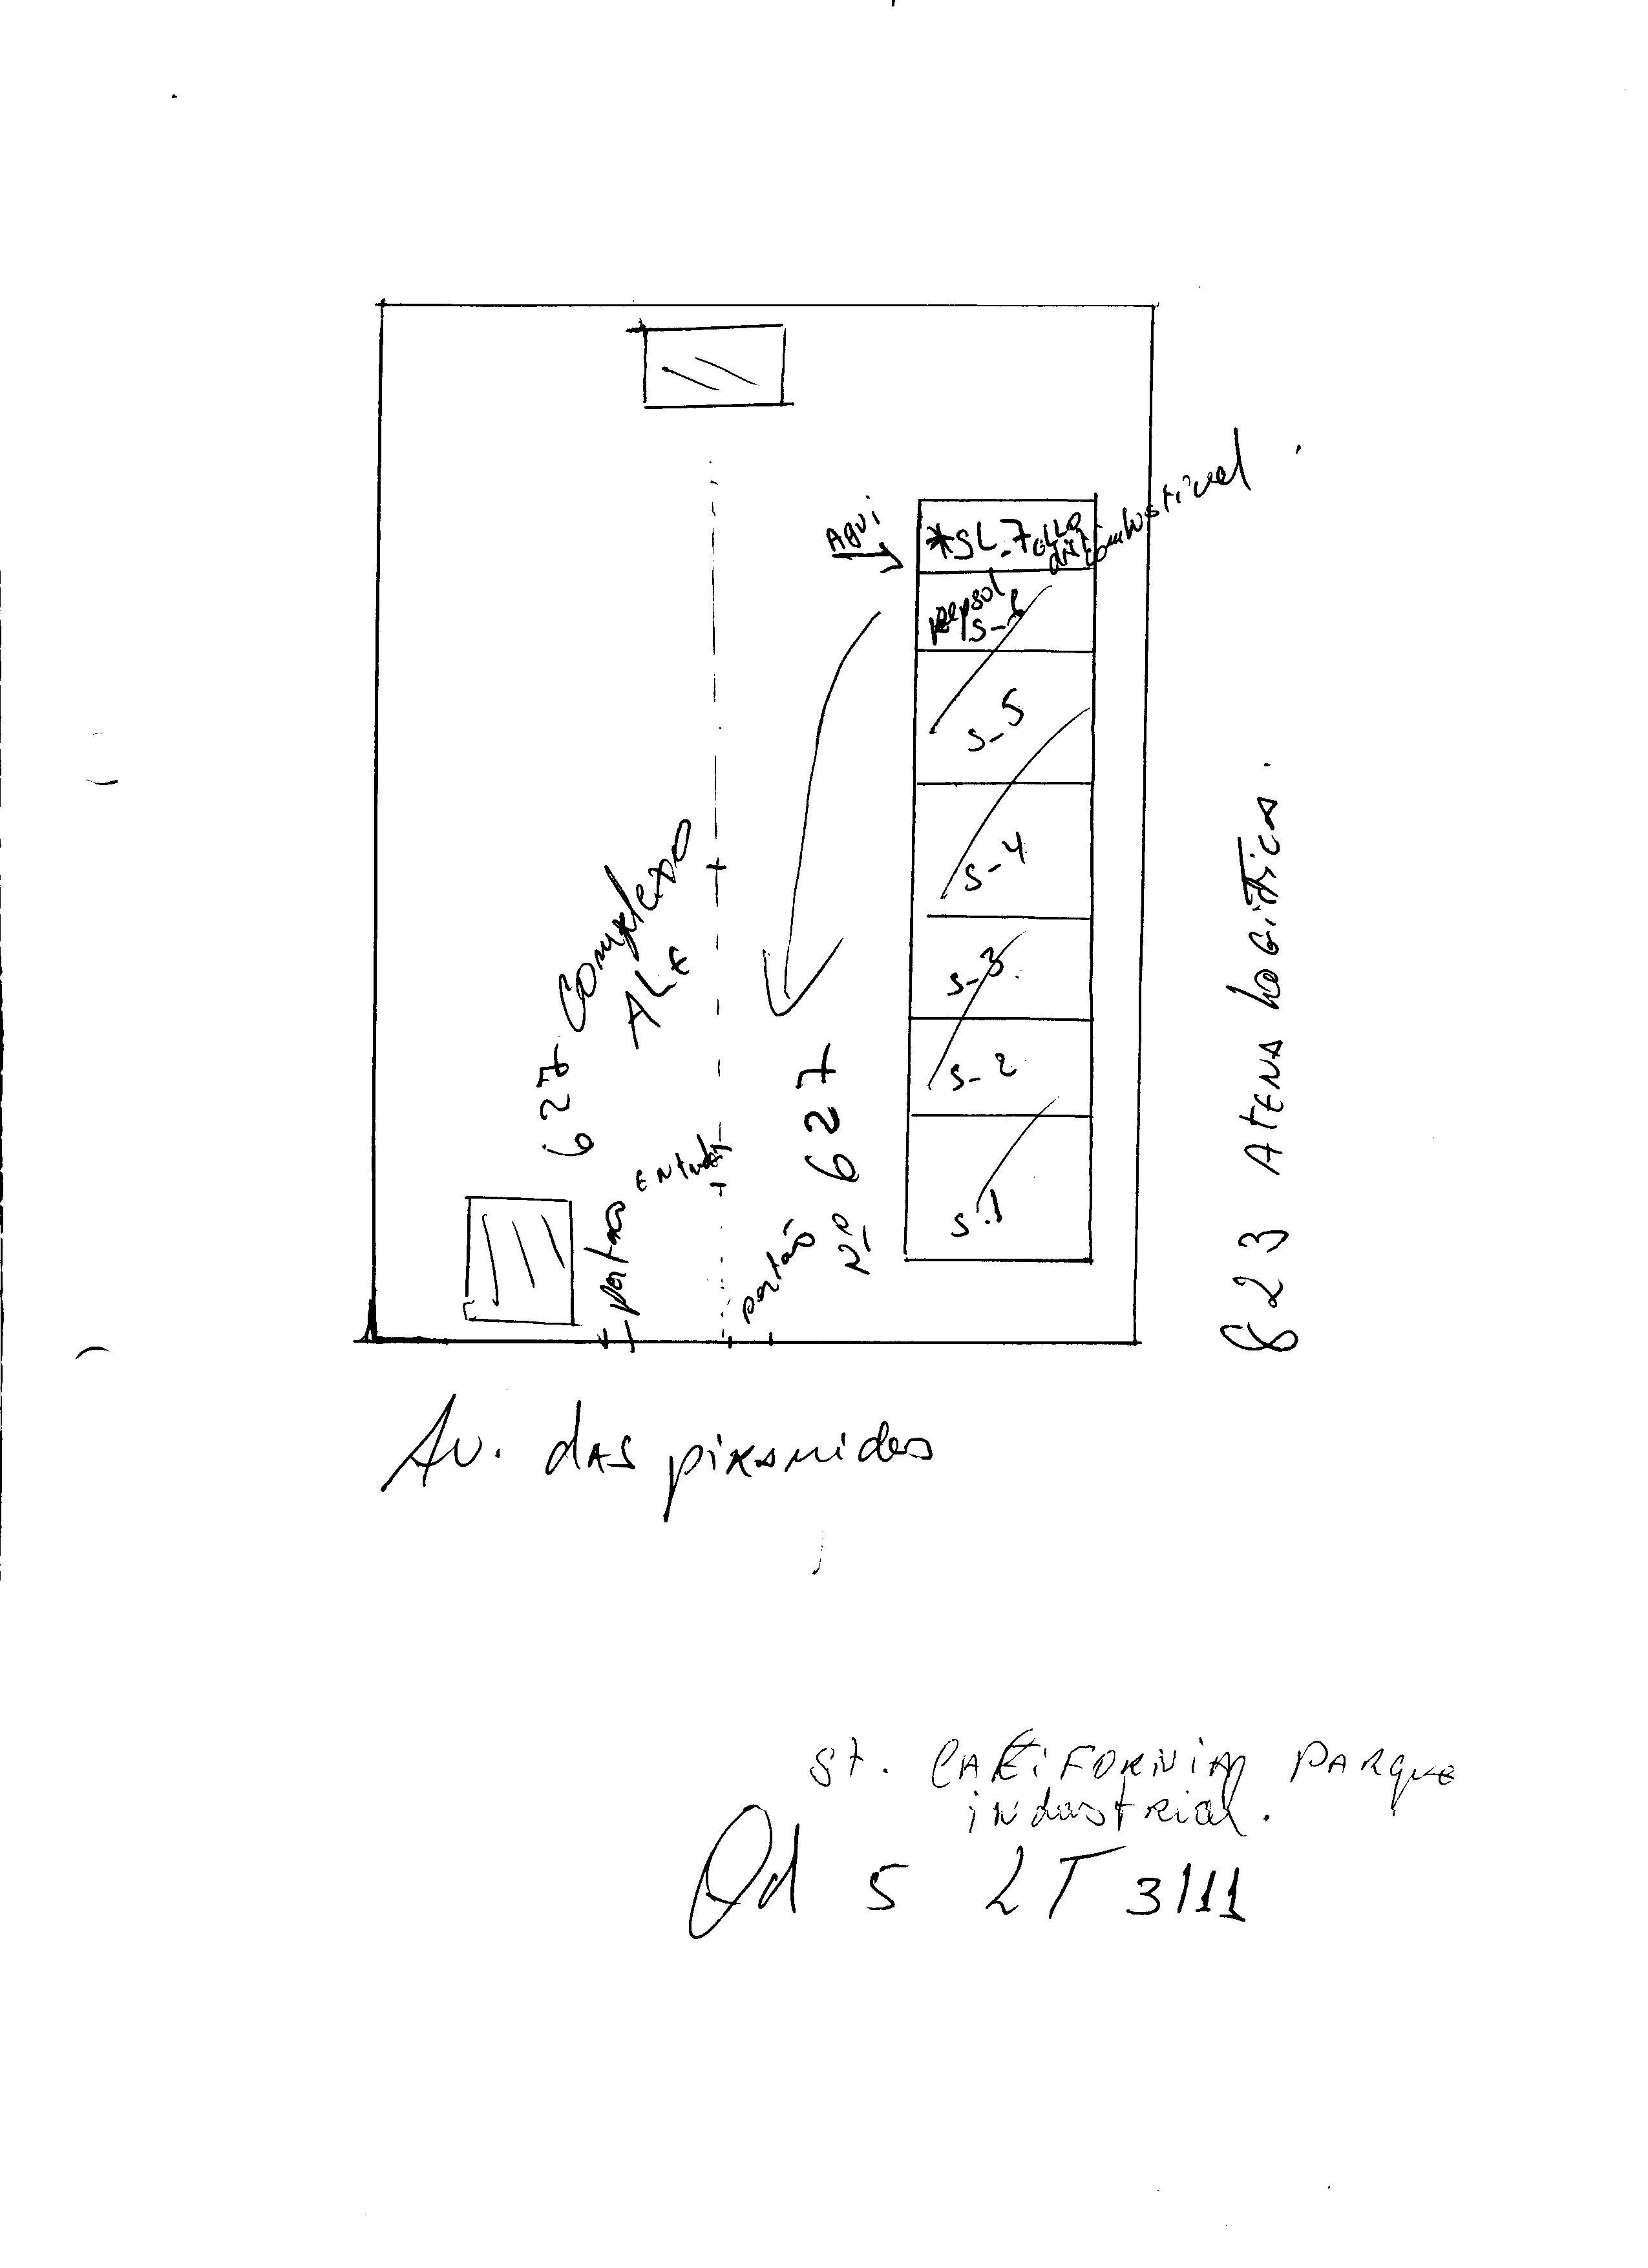 Aqui
*SL-7 ella
dis combustivel
repsol
S-6
S-5
S-4
S-3
S-2
S-1
627 Complexo
ALE
portao entrada
portão
Nº 627
823 Atena Logistica.
Av. das piramides
St. CALIFORNIA PARque
industrial.
Qd 5 LT 3/11